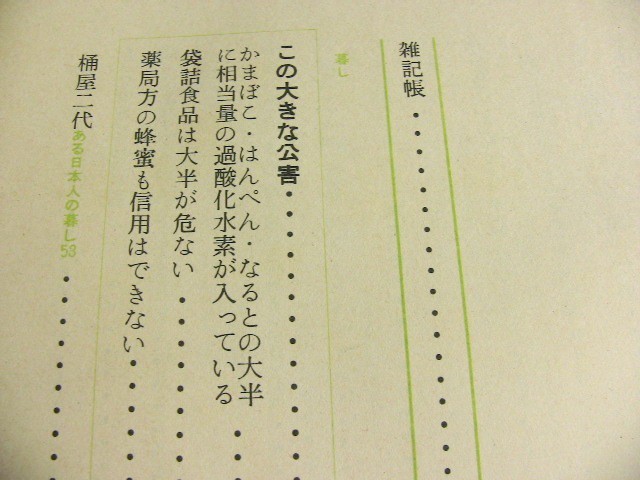 雑記帳
暮し
この大きな公害
かまぼこ・はんぺん・なるとの大半
に相当量の過酸化水素が入っている
袋詰食品は大半が危ない
薬局方の蜂蜜も信用はできない
桶屋二代 ある日本人の暮し53